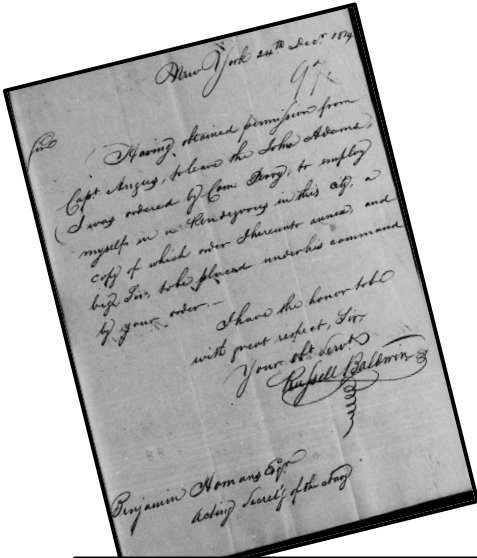 New York 24th Decr. 1814
97
Sir
Having obtained permission from
Capt. Angus, to leave the John Adams,
I was ordered by Com. Perry, to employ
myself in a Rendezvous in this city, a
copy of which order I hereunto annex, and
beg Sir, to be placed under his command
by your order.—
I have the honor to be
with great respect, Sir,
Your Obt. Servt.
Russell Baldwin
Benjamin Homans Esqr.
Acting Secrety of the Navy